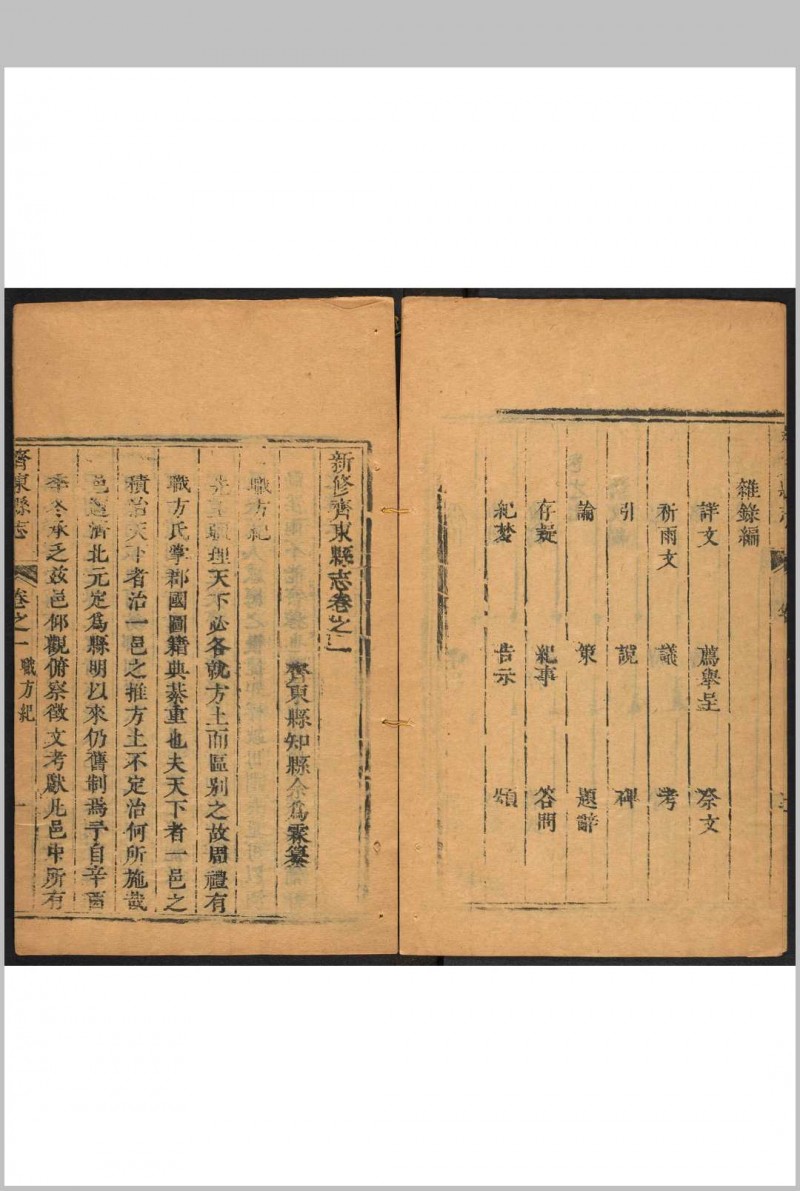 雜錄編
詳文 薦舉呈 祭文
祈雨文 議 考
引 說 碑
論 策 題辭
存疑 紀事 答問
紀夢 告示 頌
新修齊東縣志卷之一
齊東縣知縣余爲霖纂
職方紀
先王疆理天下必各就方土而區別之故周禮有
職方氏掌郡國圖籍典綦重也夫天下者一邑之
積治天下者治一邑之推方土不定治何所施哉
邑邇濟北元定爲縣明以來仍舊制焉予自辛酉
季冬承乏茲邑仰觀俯察徵文考獻凡邑中所有
齊東縣志 卷之一 職方紀 一